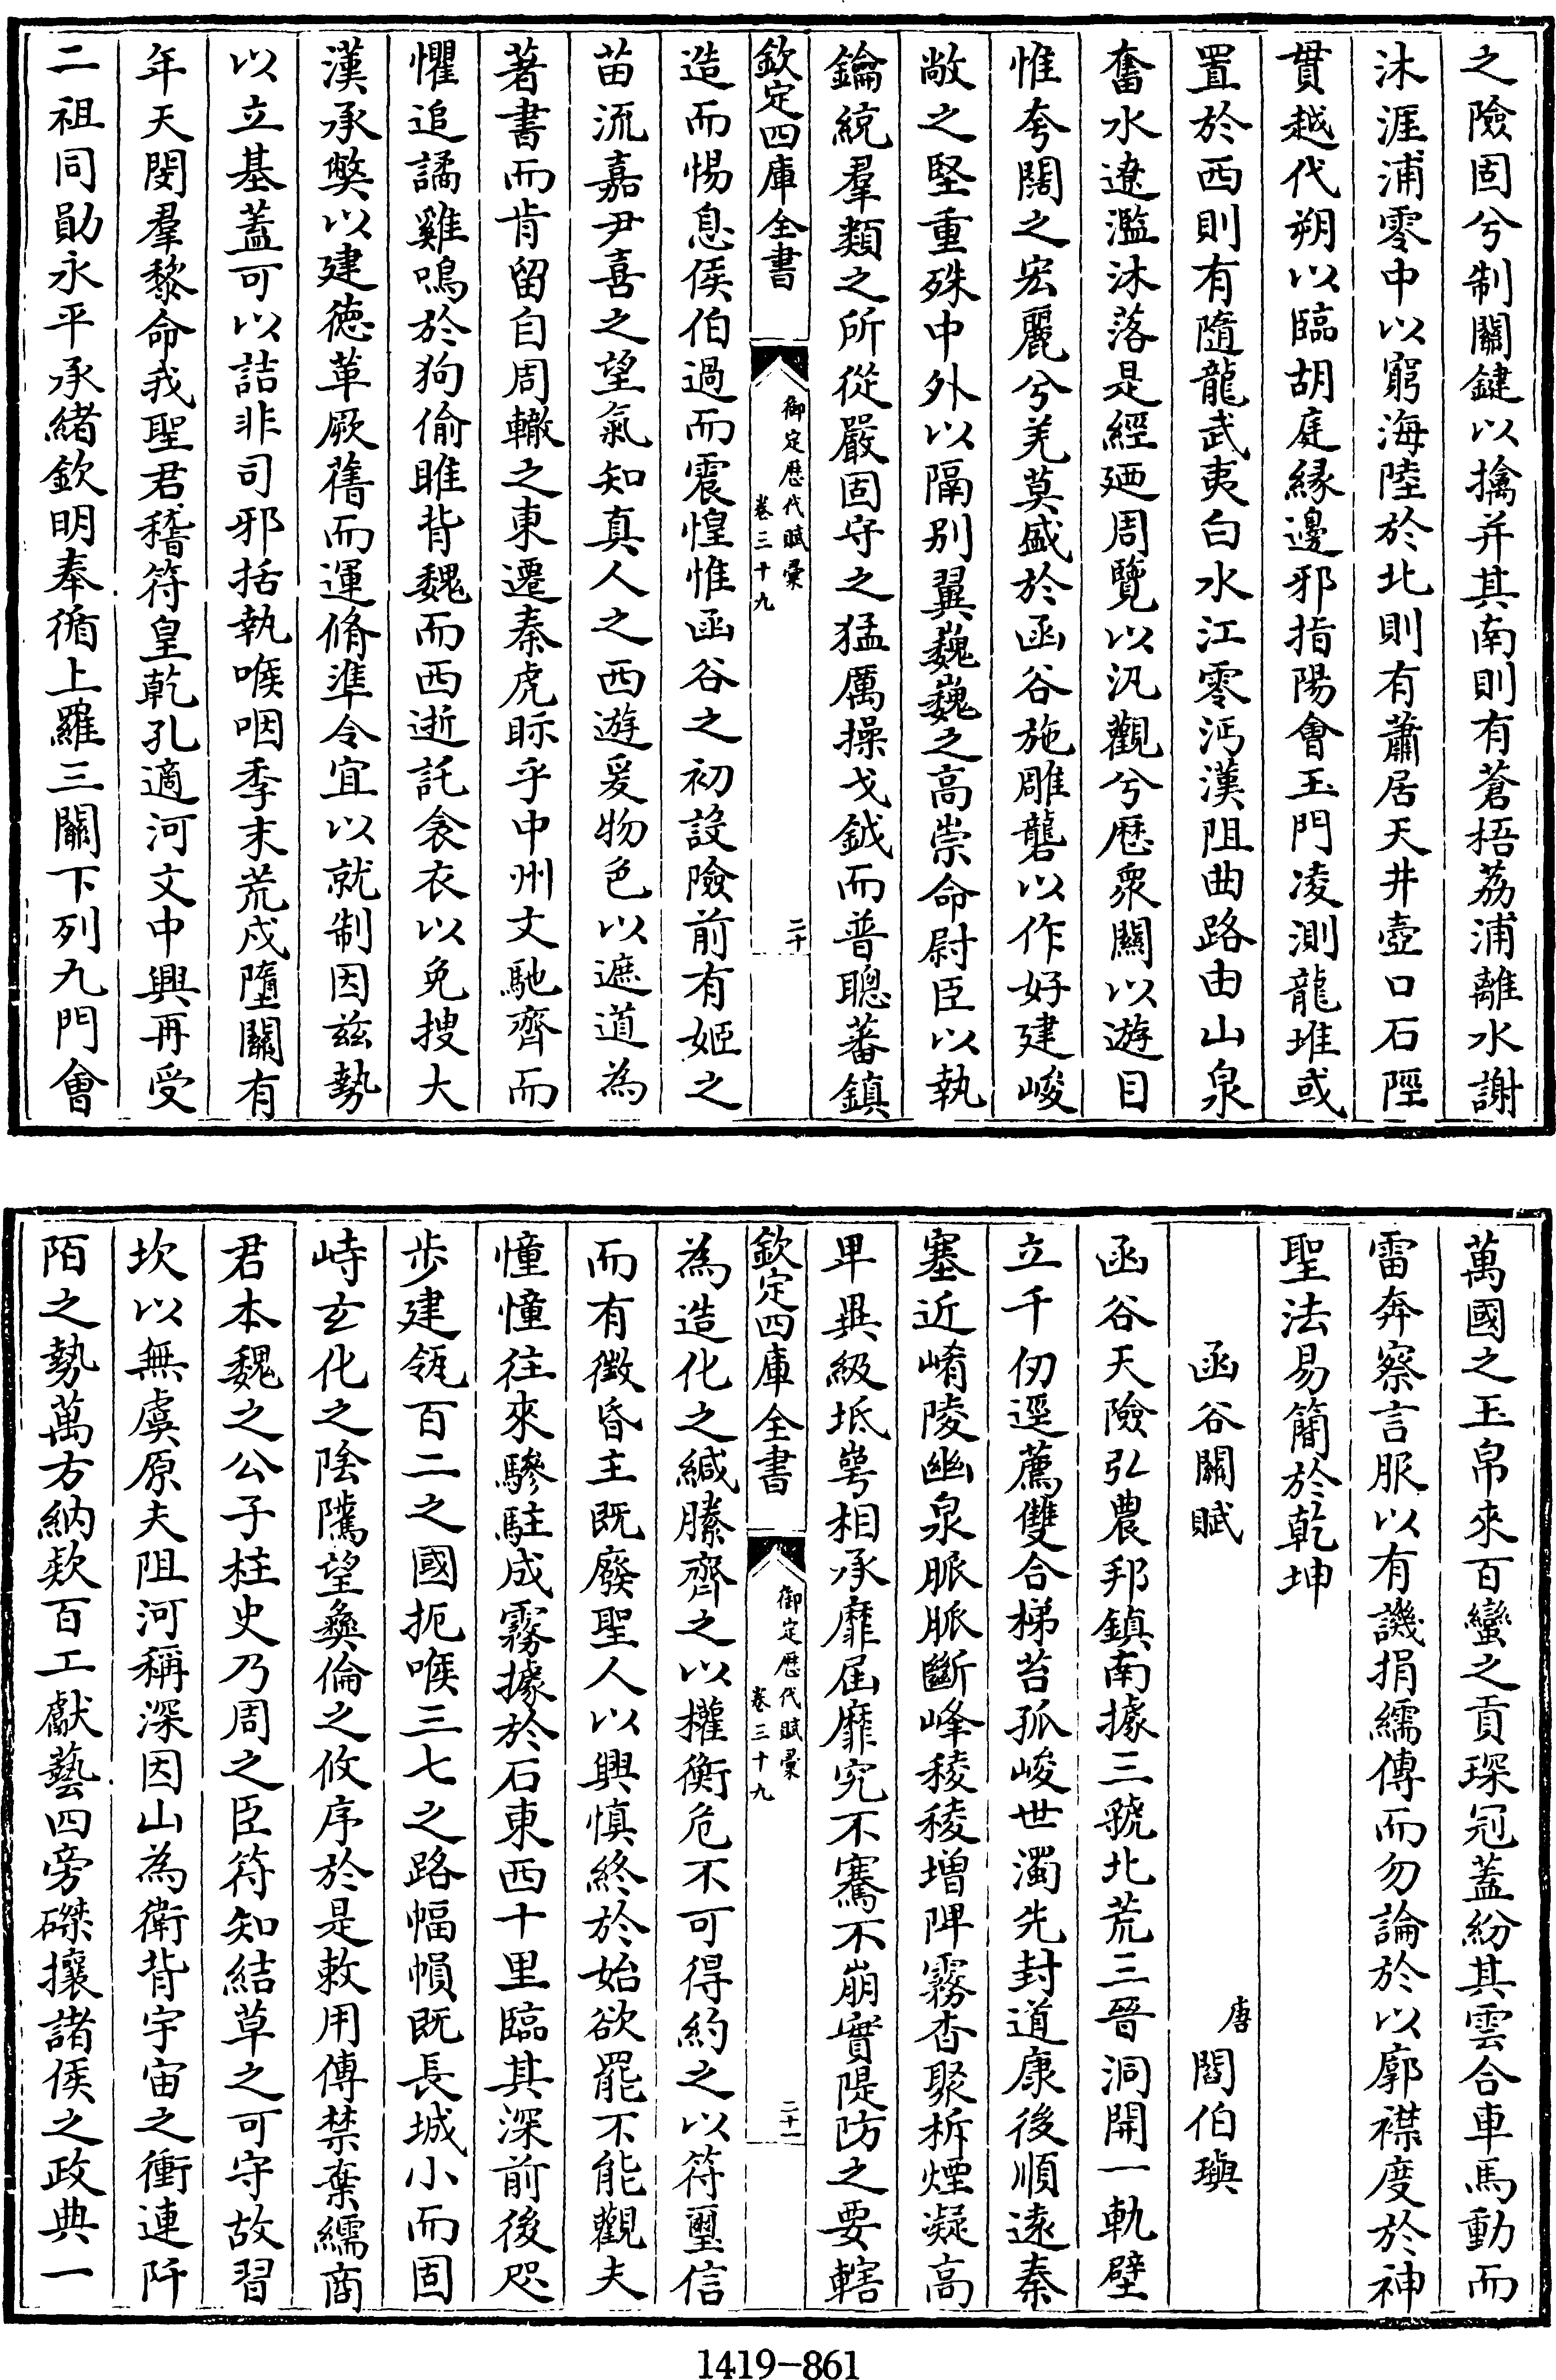 之險固兮制關鍵以擒并其南則有蒼梧荔浦離水謝
沐涯浦零中以窮海陸於北則有蕭居天井壺口石陘
貫越代朔以臨胡庭緣邊邪指陽會玉門凌測龍堆或
置於西則有隨龍武夷白水江零沔漢阻曲路由山泉
奮水遼濫沐落是經廼周覽以汎觀兮歴衆關以遊目
惟夸闊之宏麗兮羌莫盛於函谷施雕礱以作好建峻
敞之堅重殊中外以隔别翼巍巍之高崇命尉臣以執
鑰統羣類之所從嚴固守之猛厲操戈鉞而普聰蕃鎮
欽定四庫全書
御定歴代賦彙
卷三十九
二十
造而惕息侯伯過而震惶惟函谷之初設險前有姬之
苗流嘉尹喜之望氣知真人之西遊爰物色以遮道為
著書而肯留自周轍之東遷秦虎眎乎中州文馳齊而
懼追譎雞鳴於狗偷睢背魏而西逝託衾衣以免搜大
漢承弊以建徳革厥舊而運脩準令宜以就制因兹勢
以立基蓋可以詰非司邪括執喉咽季末荒戍墮關有
年天閔羣黎命我聖君稽符皇乾孔適河文中興再受
二祖同勛永平承緒欽明奉循上羅三關下列九門會
萬國之玉帛來百蠻之貢琛冠蓋紛其雲合車馬動而
雷奔察言服以有譏捐繻傳而勿論於以廓襟度於神
聖法易簡於乾坤
函谷關賦
唐 閻伯璵
函谷天險弘農邦鎮南據三虢北荒三晉洞開一軌壁
立千仞逕薦雙合梯苔孤峻世濁先封道康後順遠秦
塞近崤陵幽泉脈脈斷峰稜稜增陴霧杳聚柝煙凝高
卑異級坻崿相承靡届靡究不騫不崩實隄防之要轄
欽定四庫全書
御定歴代賦彙
卷三十九
二十一
為造化之緘縢齊之以權衡危不可得約之以符璽信
而有徵昏主既廢聖人以興慎終於始欲罷不能觀夫
憧憧往來驂駐成霧據於石東西十里臨其深前後咫
步建瓴百二之國扼喉三七之路幅幀既長城小而固
峙玄化之陰隲望彝倫之攸序於是敕用傳禁棄繻商
君本魏之公子柱史乃周之臣符知結草之可守故習
坎以無虞原夫阻河稱深因山為衛背宇宙之衝連阡
陌之勢萬方納欵百工獻藝四旁磔攘諸侯之政典一
1419-861